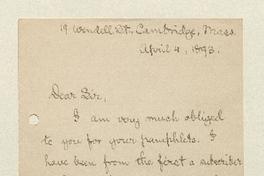 19 Wendell St. Cambridge, Mass.
April 4, 1893.
Dear Sir,
I am very much obliged
to you for your pamphlets. I
have been from the first a subscriber